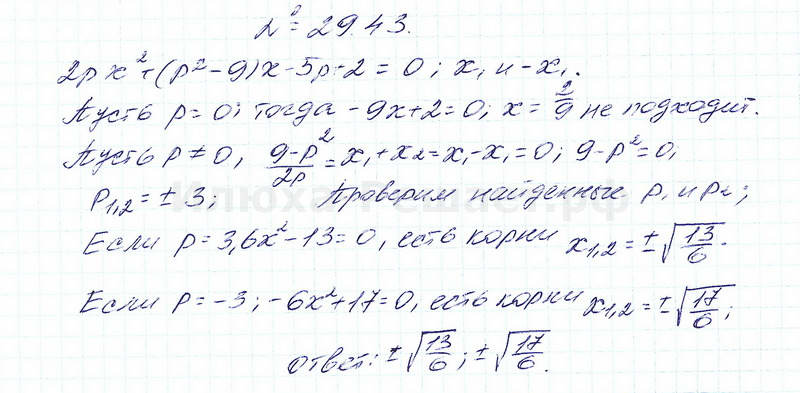 № 29.43.
2px² + (p² - 9)x - 5p + 2 = 0; x₁ и -x₁.
Пусть p = 0; тогда -9x + 2 = 0; x = 2/9 не подходит.
Пусть p ≠ 0, (9-p²)/2p = x₁ + x₂ = x₁ - x₁ = 0; 9 - p² = 0,
p₁,₂ = ± 3; Проверим найденные p₁ и p₂;
Илюха-Решает.рф
Если p = 3, 6x² - 13 = 0, есть корни x₁,₂ = ±√(13/6).
Если p = -3; -6x² + 17 = 0, есть корни x₁,₂ = ±√(17/6);
ответ: ±√(13/6); ±√(17/6).